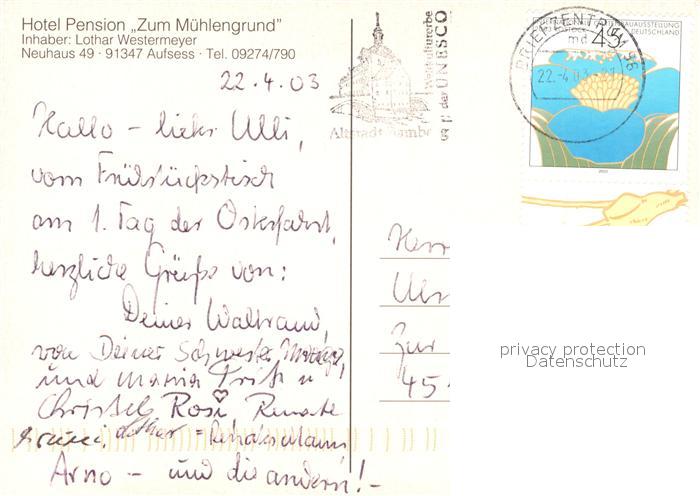 Hotel Pension „Zum Mühlengrund"
Inhaber: Lothar Westermeyer
Neuhaus 49 · 91347 Aufsess · Tel. 09274/790
22.4.03
Hallo - lieber Ulli,
vom Frühstückstisch
am 1. Tag der Osterfahrt,
herzliche Grüße von:
Deiner Waltraud,
von Deiner Schwester
und Maria Fritz u
Christel, Rosi, Renate
Lothar = Renates Mann,
Arno - und die andern! -
UNESCO
Weltkulturerbe
der
Altstadt Bambe
BRIEFZENTRUM 96
md
22.-4.03
45
DEUTSCHLAND
2003
Herr
Zur
45
privacy protection
Datenschutz